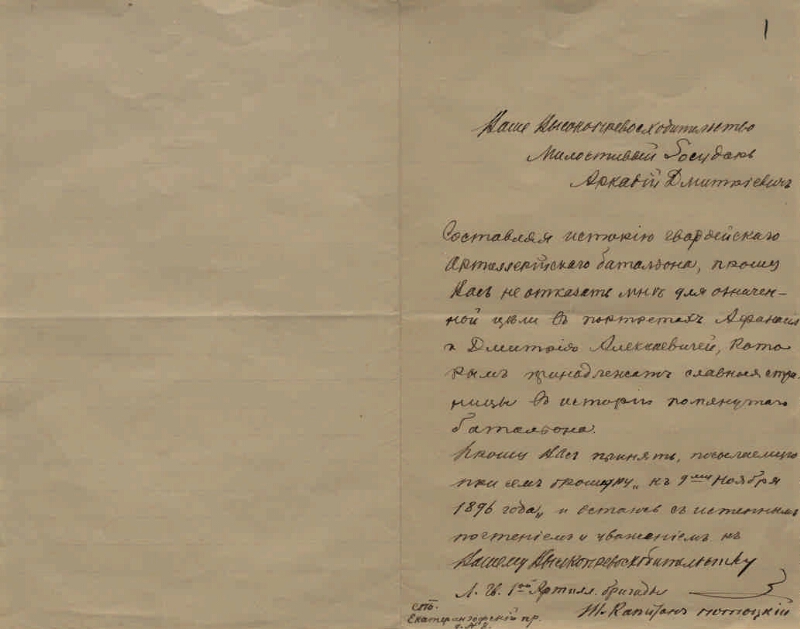 1
Ваше Высокопревосходительство
Милостивый Государь
Аркадій Дмитріевичъ
Составляя исторію гвардейскаго
Артиллерійскаго баталіона, прошу
Васъ не отказать мнѣ для означен-
ной цѣли въ портретахъ Афанасія
и Дмитрія Алексѣевичей, кото
рымъ принадлежатъ славныя стра
ницы въ исторіи помянутаго
баталіона.
Прошу Васъ принять, посылаемую
при семъ брошюру „къ 9му Ноября
1896 года„ и остаюсь съ истиннымъ
почтеніемъ и уваженіемъ къ
Вашему Высокопревосходительству
Л. Гв. 1ой Артилл. бригады
Ш. Капитанъ Потоцкій
СПб.
Екатерингофскій пр.